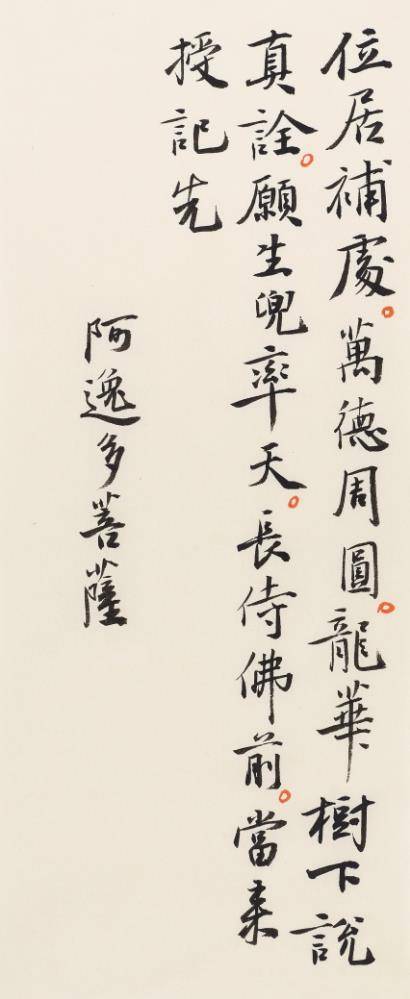 位居補處。萬德周圓。龍華樹下說
真詮。願生兜率天。長侍佛前。當來
授記先
阿逸多菩薩